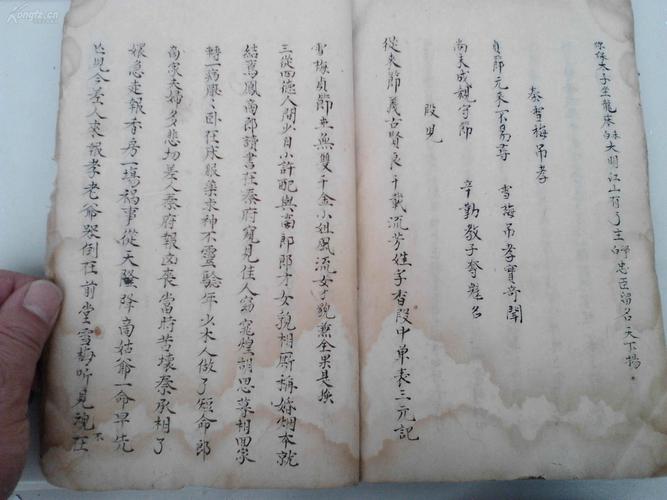 保太子坐龍床 大明江山有了主 忠臣留名天下揚
秦雪梅吊孝
貞節元來不易尋 雪梅吊孝實奇聞
尚未成親守節 辛勤教子奪魁名
段 兒
從來節義古賢良千載流芳姓字香段中单表三元記
雪梅貞節世無雙千金小姐風流女子貌無全果是強
三從四德人間少自小許配與商郎郎才女貌相厮称婚烟本就
結鸞鳳商郎讀書在秦府窺見佳人窈窕慌胡思菜相回家
轉一病厭厭卧在床服藥求神不靈驗年少未人做了短命郎
商家夫婦多悲切差人秦府報凶喪當時苦壞秦承相了
嬛急走報香房一場禍事從天降商姑爺一命早先
亡現今差人來報孝老爺哭倒在前堂雪梅听見魂不在
Kongtz.cn